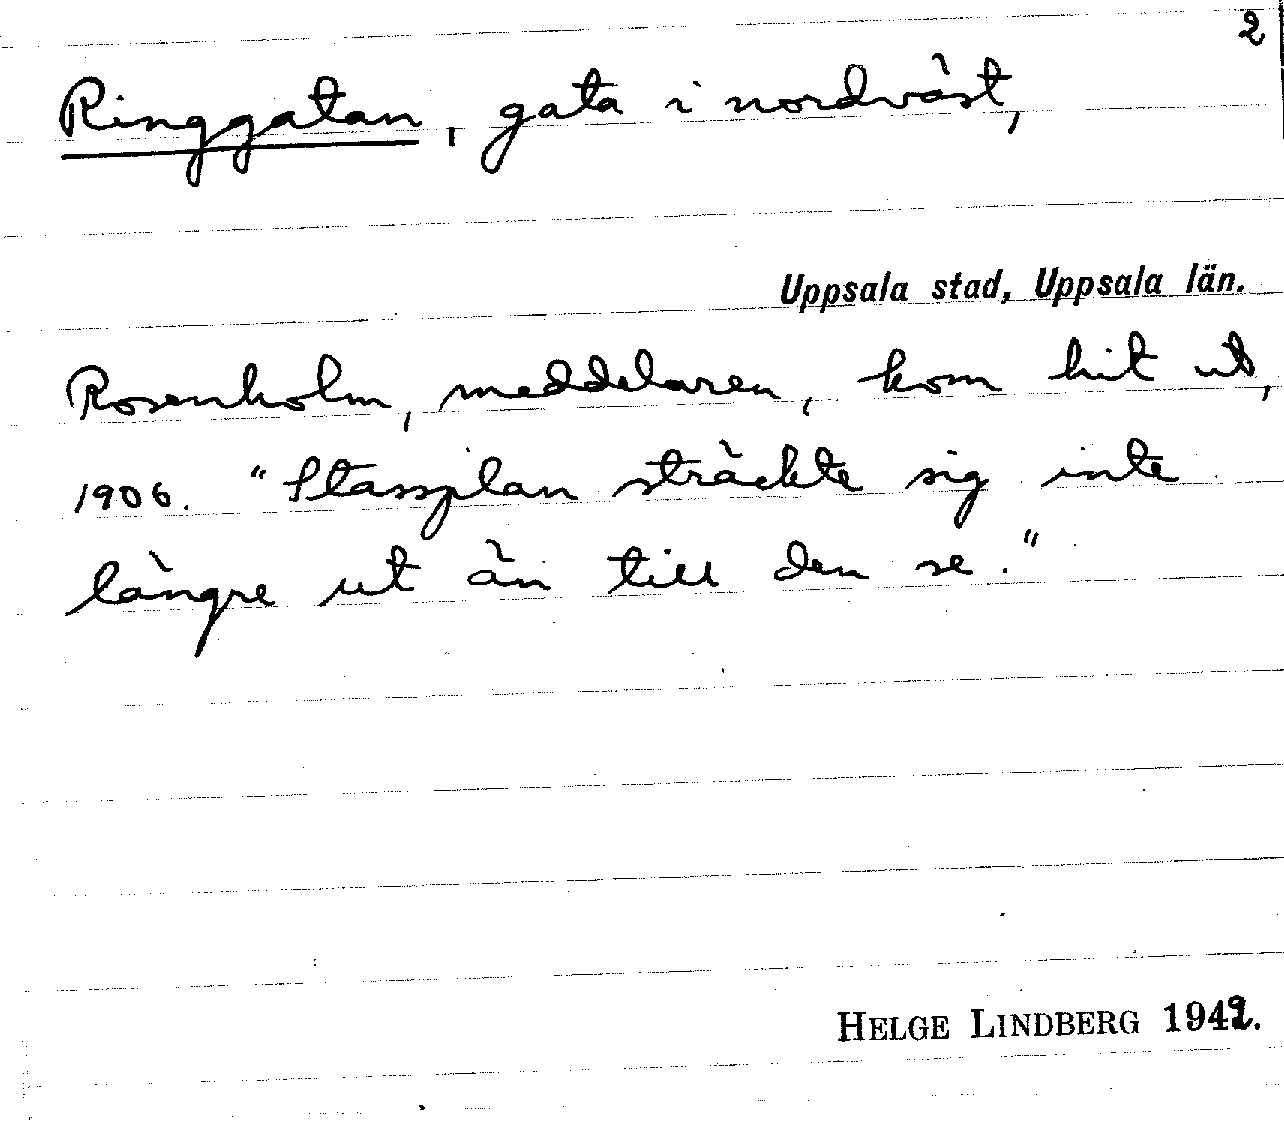 2
Ringgatan, gata i nordväst,
Uppsala stad, Uppsala län.
Rosenholm, meddelaren, kom hit ut,
1906. "Stassplan sträckte sig inte
längre ut än till den se."
HELGE LINDBERG 1942.